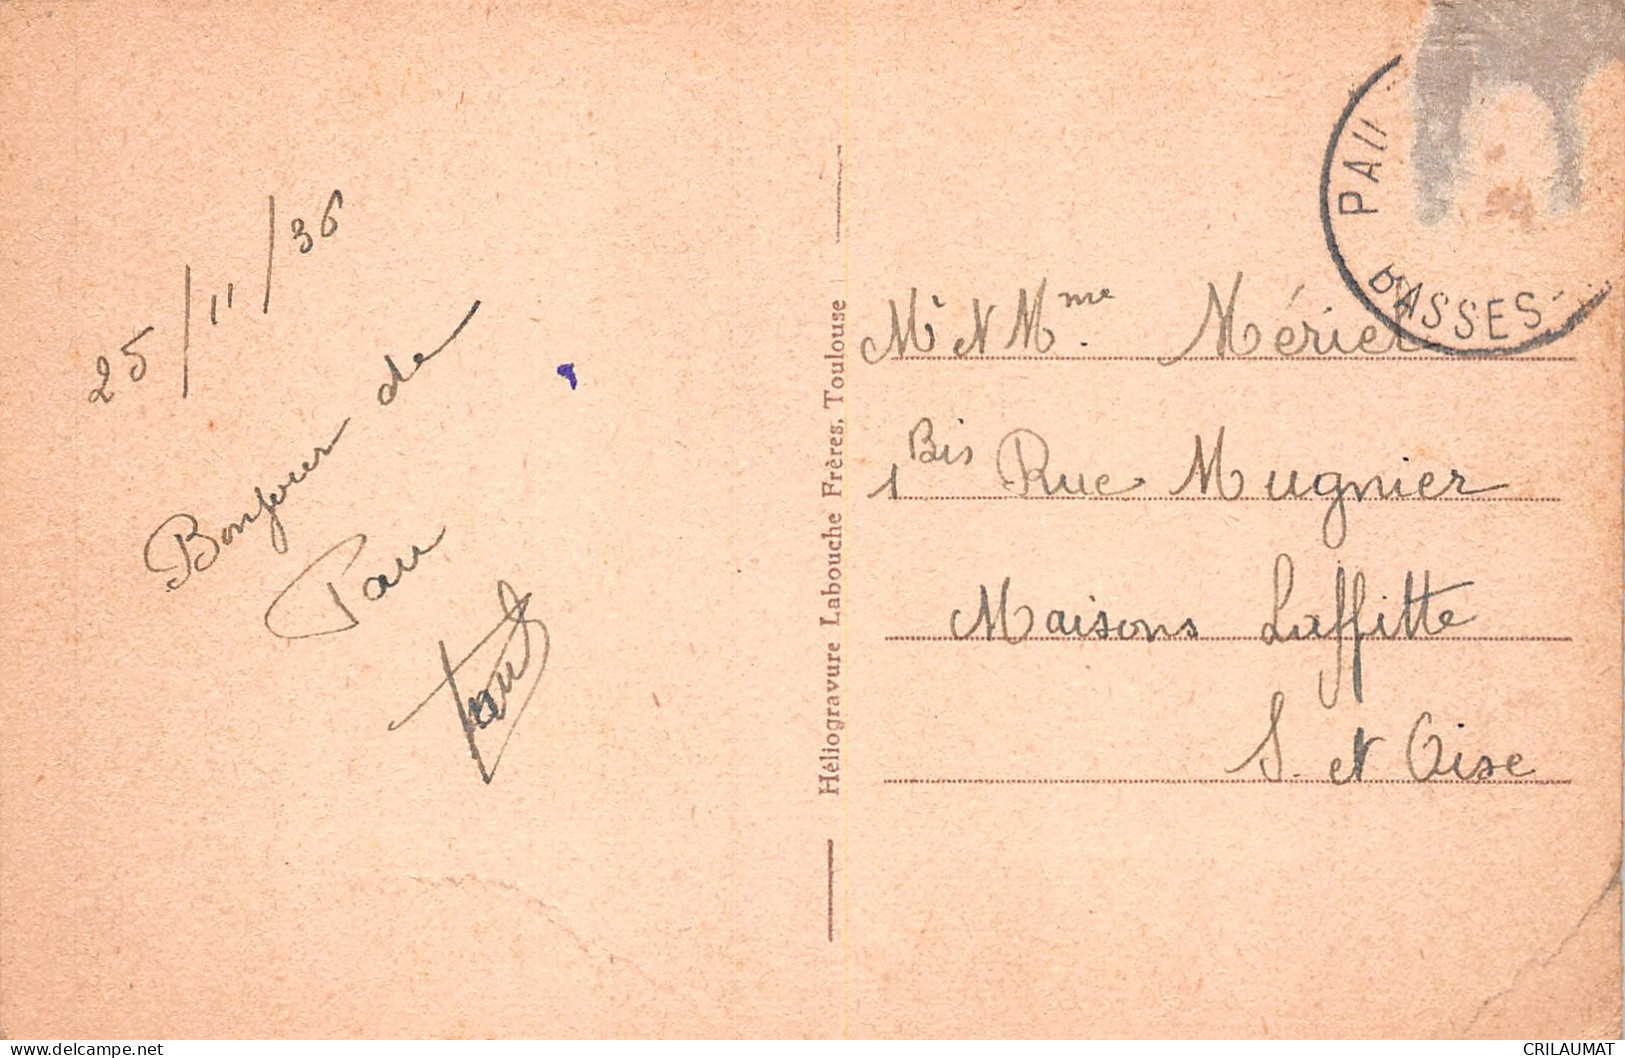 25/11/36
Bonjour de
Pau
Héliogravure Labouche Frères, Toulouse
PAU
BASSES-
Mr et Mme. Mériel
1 Bis Rue Mugnier
Maisons Laffitte
S. et Oise
CRILAUMAT